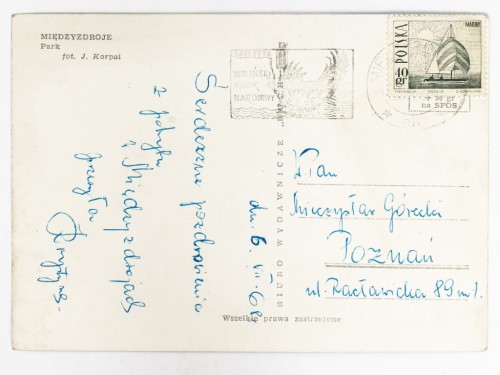 MIĘDZYZDROJE
Park
fot. J. Korpal
Serdeczne pozdrowienia
z pobytu
w Międzyzdrojach
przesyła
dn. 6. VII-68
BIURO WYDAWNICZE „RUCH”
Wszelkie prawa zastrzeżone
ZWIEDZAJCIE
WOLIŃSKI
PARK
NARODOWY
POLSKA
MAZURY
40 gr
+ 20 gr
na SFOS
W Pan
Mieczysław Górecki
Poznań
ul. Racławicka 89 m 1.